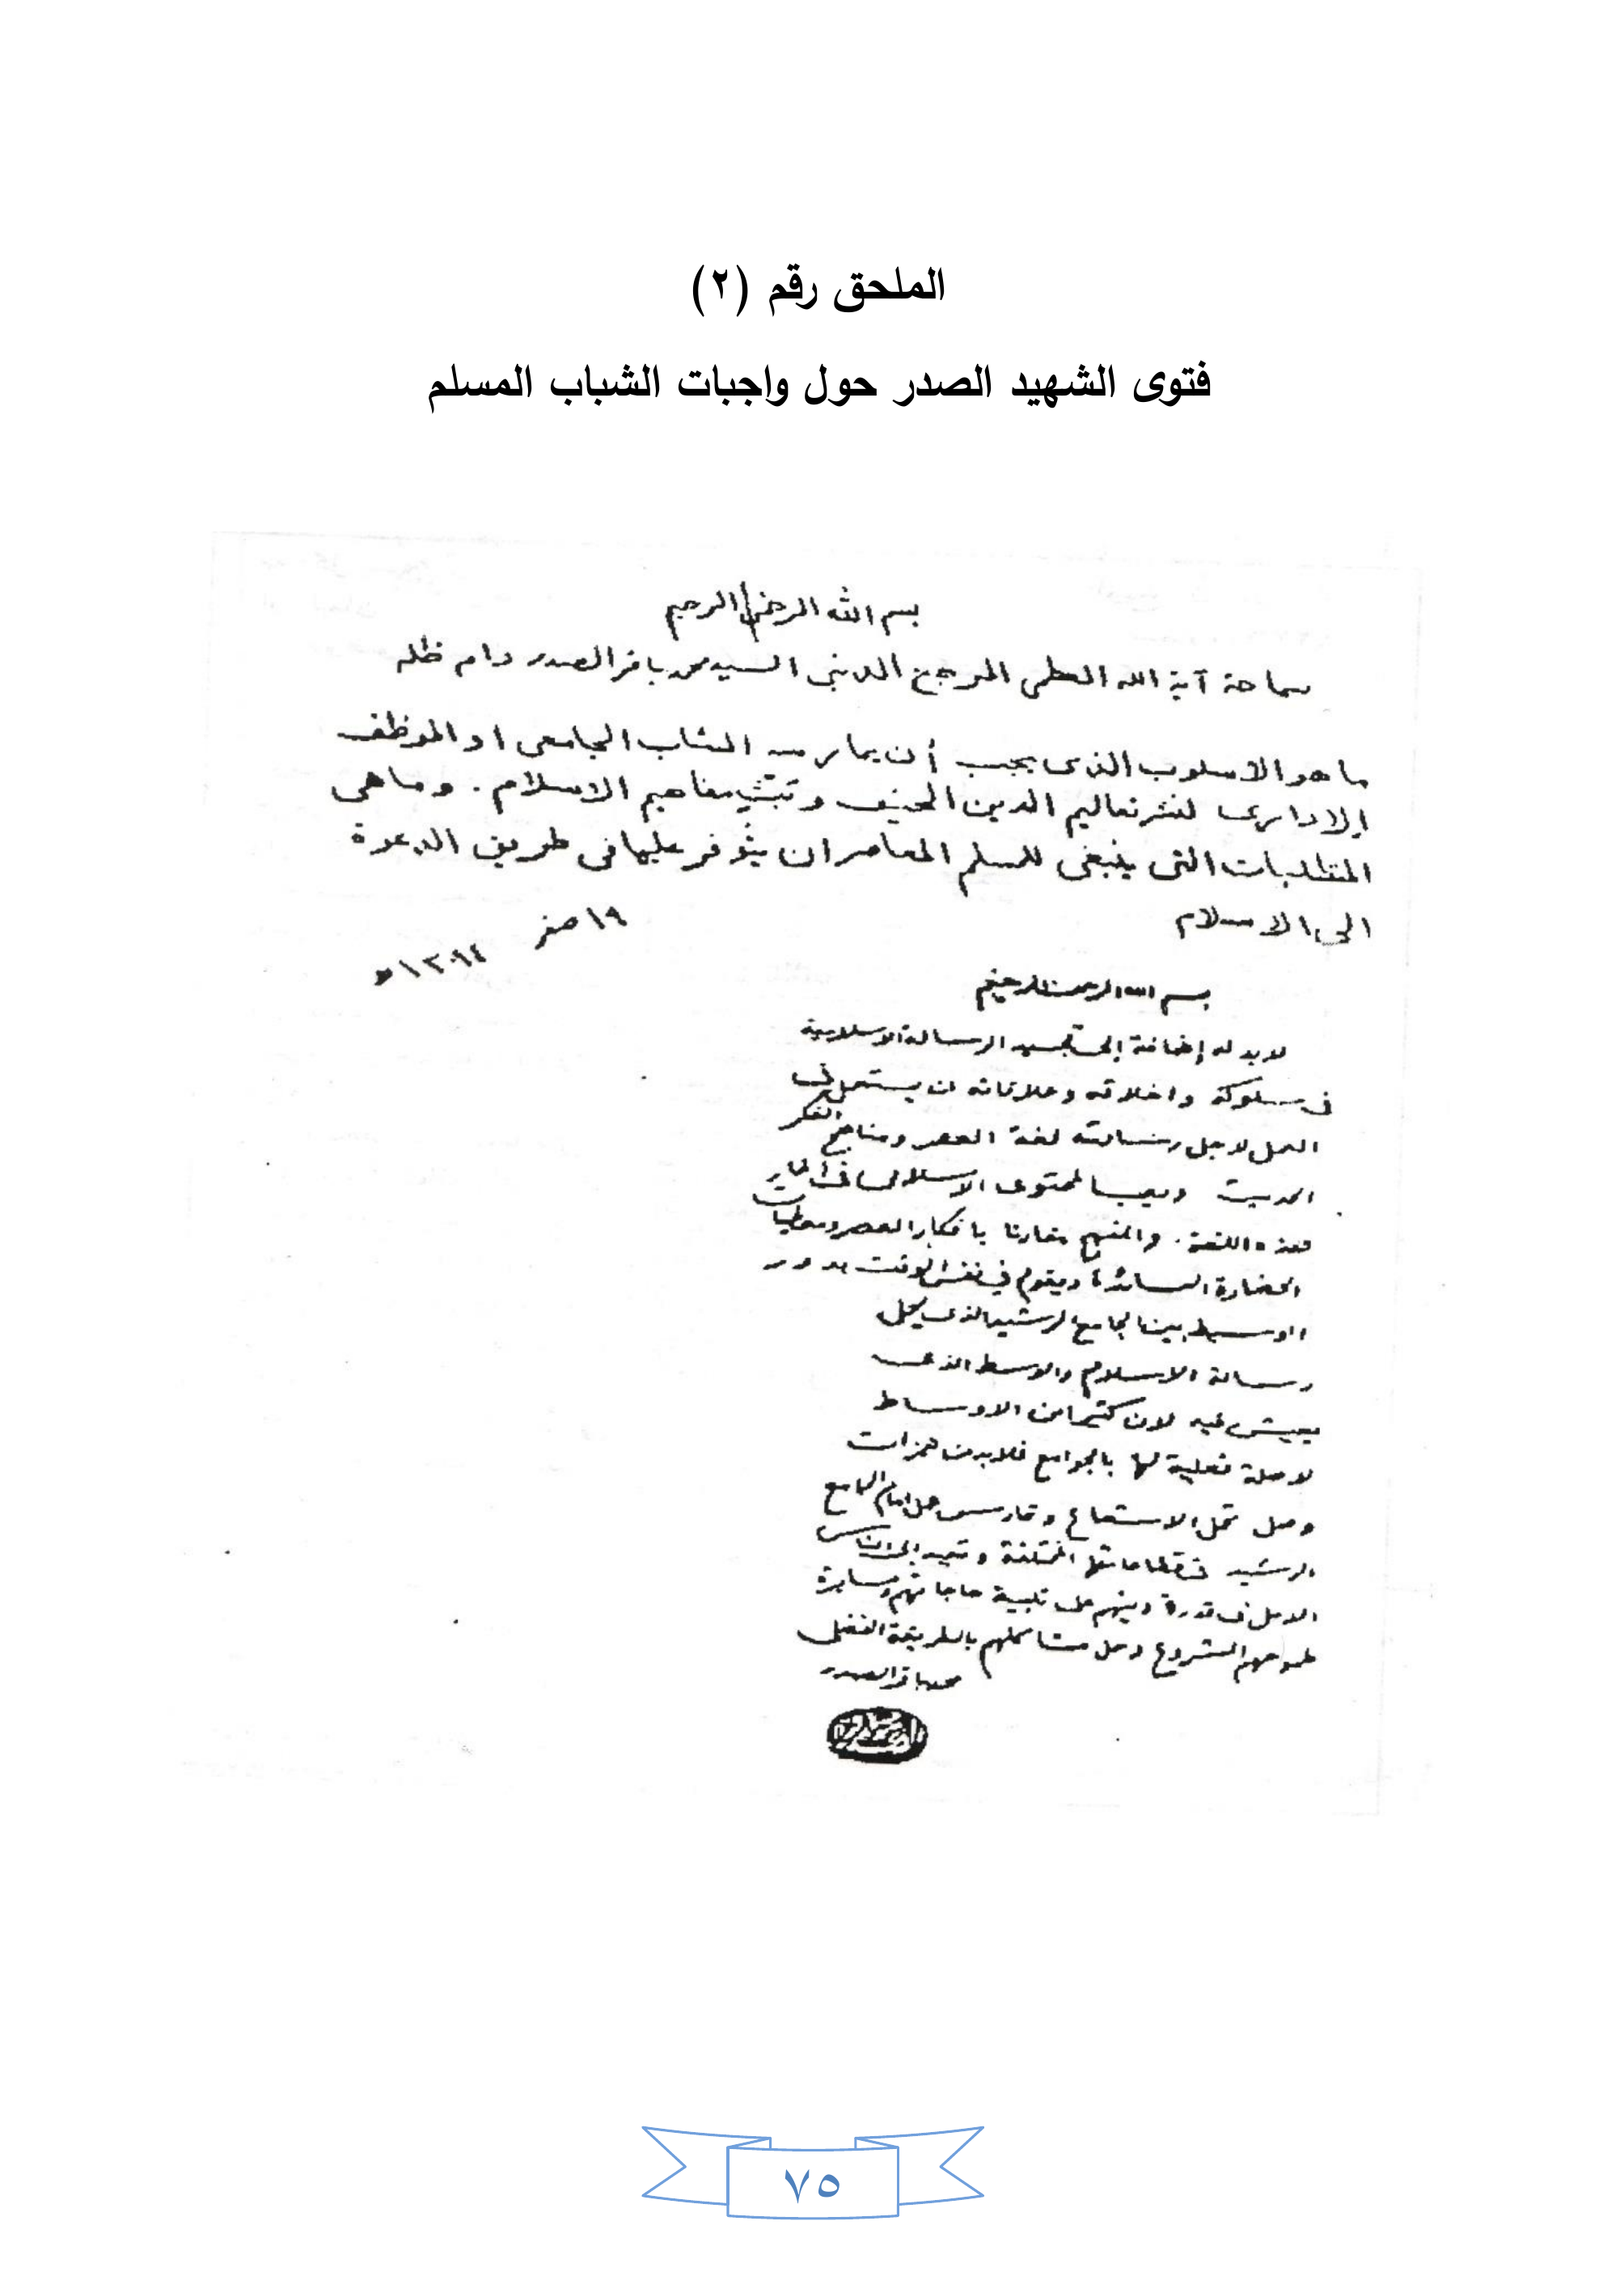 الملحق رقم (٢)
فتوى الشهيد الصدر حول واجبات الشباب المسلم
بسم الله الرحمن الرحيم
سماحة آية الله العظمى المرجع الديني السيد محمد باقر الصدر دام ظله
ما هو الاسلوب الذي يجب أن يمارسه الشاب الجامعي او الموظف
الاداري لنشر تعاليم الدين الحنيف و مفاهيم الاسلام . وما هي
المتطلبات التي ينبغي للمسلم المعاصر ان يتوفر عليها في طريق الدعوة
الى الاسلام
١٩ صفر
١٣٩٤ هـ
بسم الله الرحمن الرحيم
لابد له إضافة إلى تجسيد الرسالة الاسلامية
في سلوكه واخلاقه وعلاقاته ان يستعمل في
العمل لاجل رسالته لغة العصر ومناهج الفكر
الحديث المحتوى الاسلامي في اطار
هذه اللغة . والمنهج مقارنا بافكار العصر ومعطيات
الحضارة السائدة ويقوم في نفس الوقت بدور
الوسيط بين الجامع الرشيد الذي يحمل
رسالة الاسلام والوسط الذي
يعيش فيه لان كثيرا من الاوساط
لا صلة فعلية لها بالجوامع فلابد من همزات
وصل تحمل الاشعاع وتمارس عمل امام الجامع
الرشيد في قطاعاتها المختلفة وتعيد إلى الناس
الامل في قدرة دينهم على تلبية حاجاتهم ومسايرة
طموحهم المشروع وحل مشاكلهم بالطريقة الفضلى
محمد باقر الصدر
٧٥